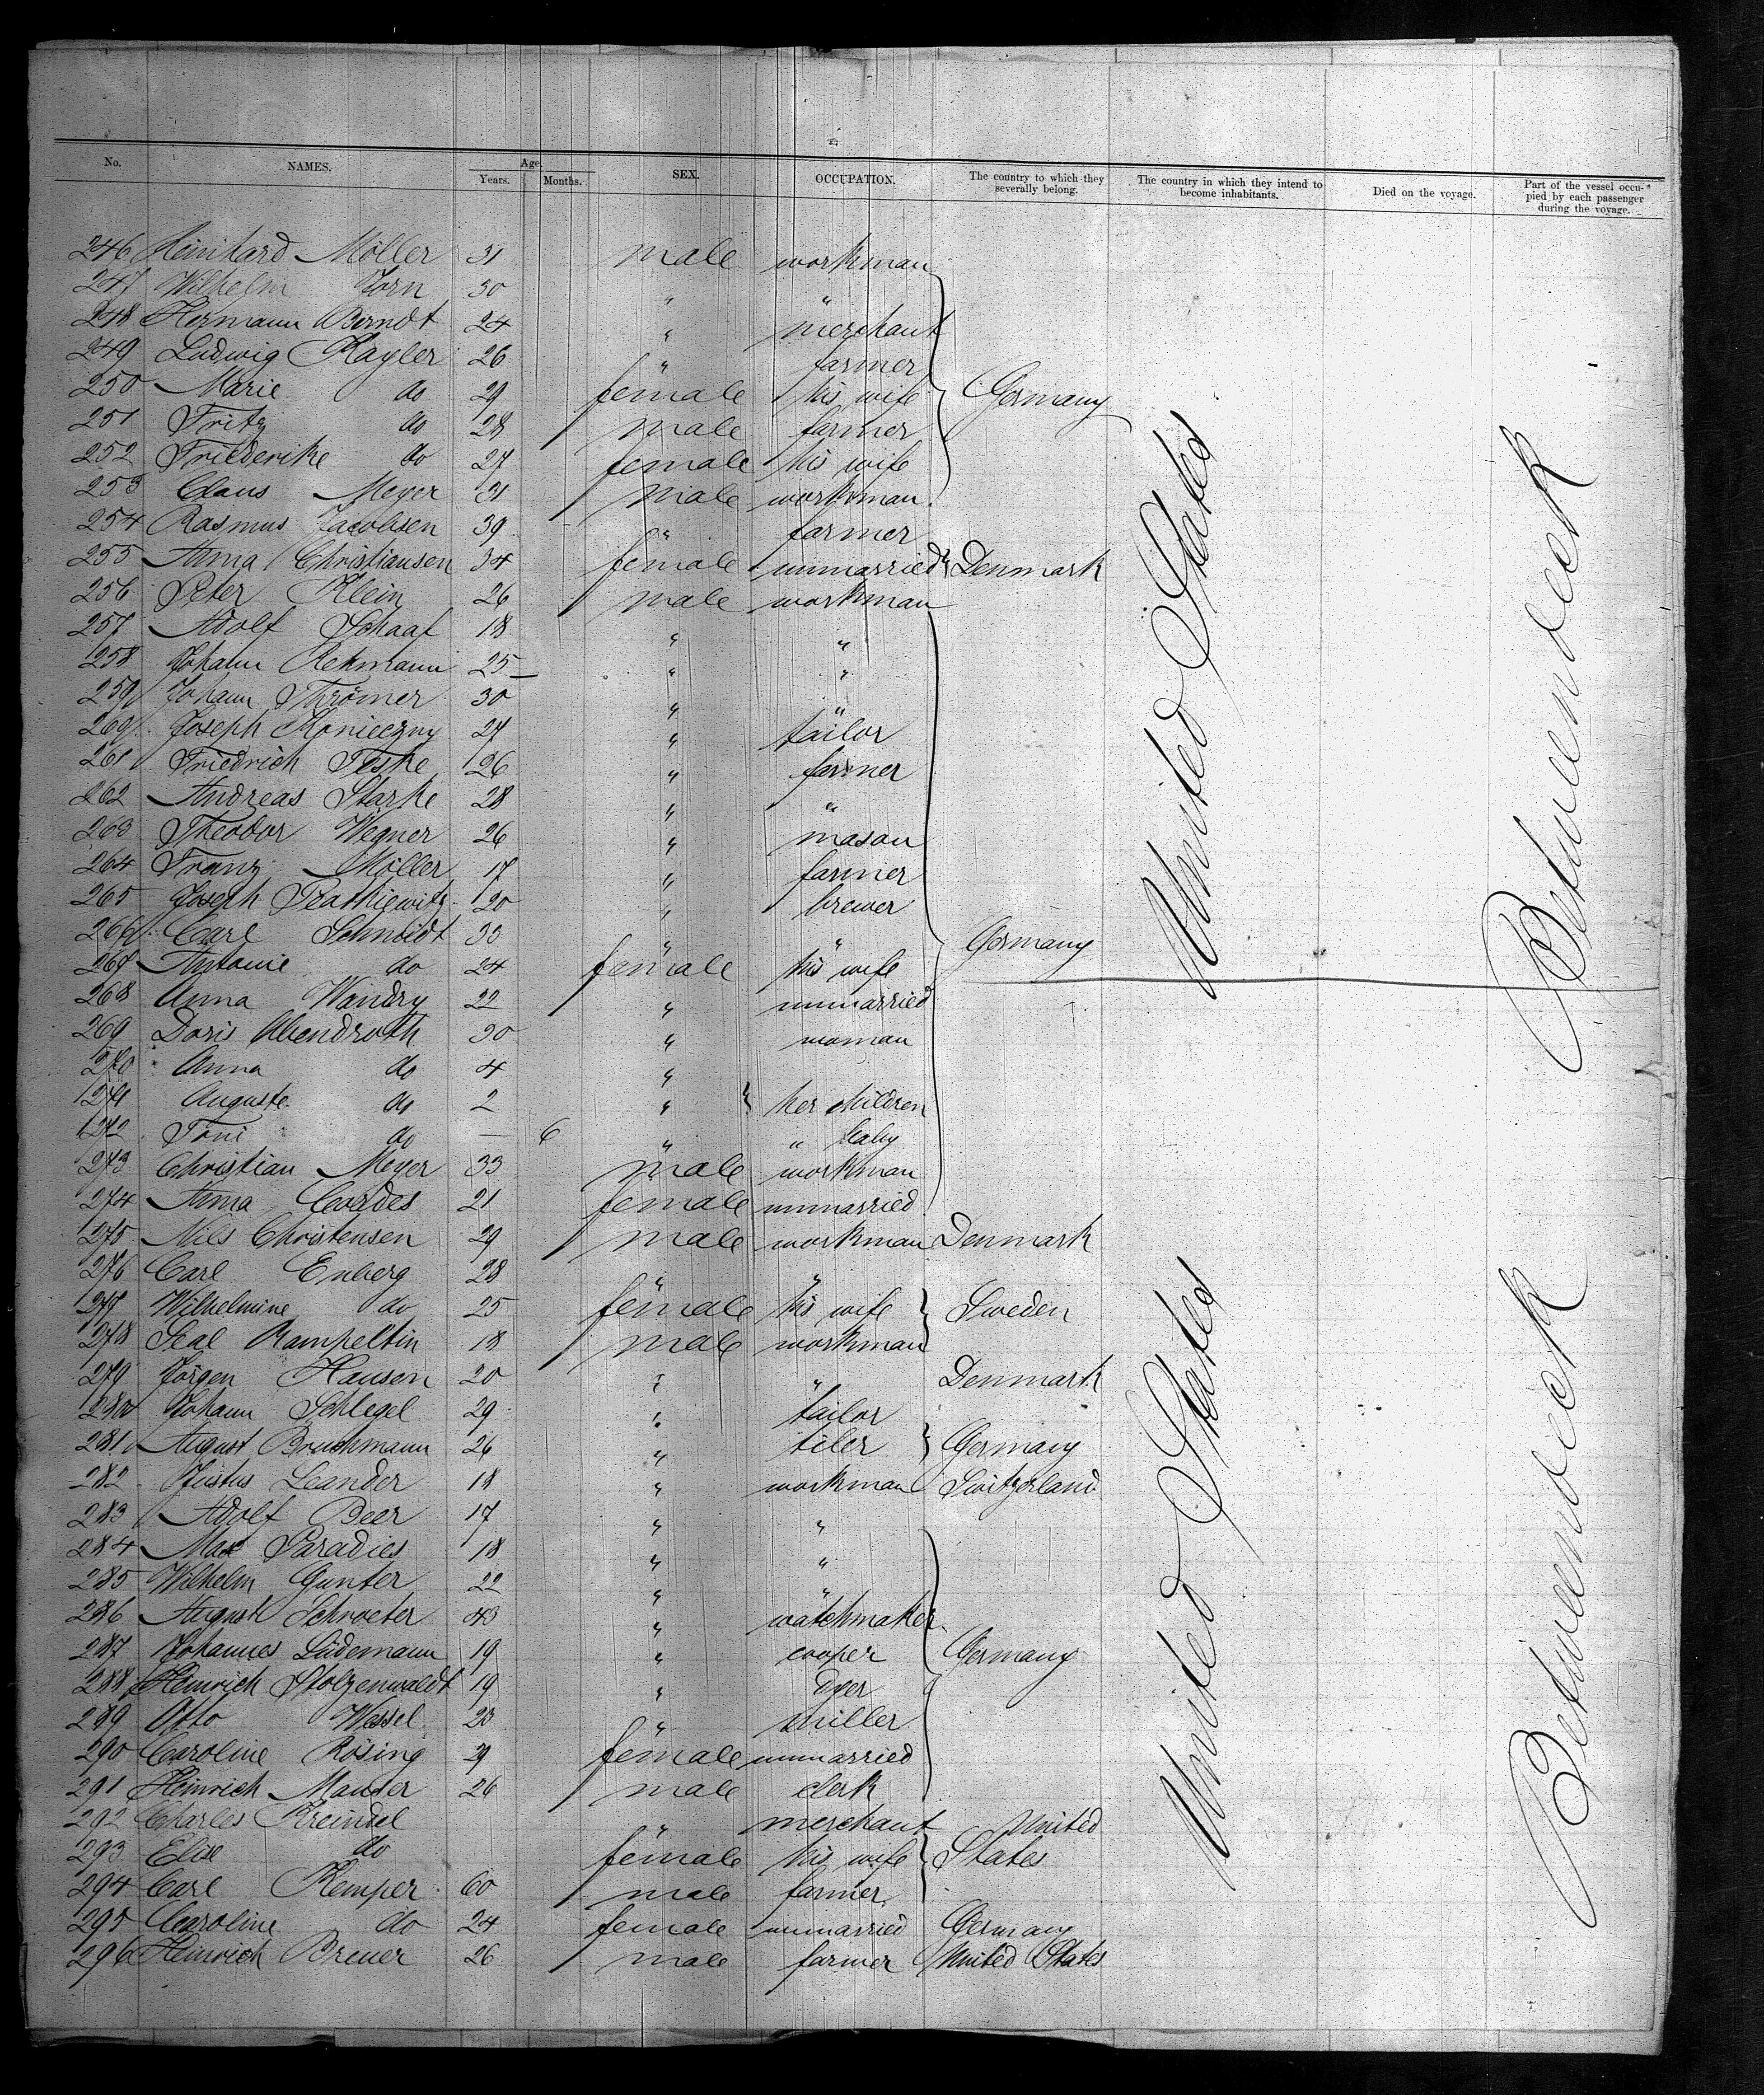 No. NAMES. Age. Years. Months. SEX. OCCUPATION. The country to which they severally belong. The country in which they intend to become inhabitants. Died on the voyage. Part of the vessel occupied by each passenger during the voyage.
246 Heinhard Möller 31 male workman
247 Wilhelm Jorn 30 " "
248 Hermann Berndt 24 " merchant
249 Ludwig Kayler 26 " farmer
250 Marie do 29 female his wife Germany
251 Fritz do 28 male farmer
252 Friederike do 27 female his wife
253 Claus Meyer 31 male workman
254 Rasmus Jacobsen 39 " farmer
255 Anna Christiansen 34 female unmarried Denmark
256 Peter Klein 26 male workman
257 Adolf Schaaf 18 " "
258 Johann Rehmann 25 " "
259 Johann Thrömer 30 " "
260 Joseph Konieczny 27 " tailor
261 Friedrich Teske 26 " farmer
262 Andreas Starke 28 " "
263 Theodor Wegner 26 " mason
264 Franz Möller 17 " farmer
265 Joseph 20 " brewer
266 Carl Schmidt 33 " "
267 Antonie do 24 female his wife Germany
268 Anna Wandry 22 " unmarried
269 Doris Abendroth 30 " woman
270 Anna do 4 "
271 Auguste do 2 " her children
272 Toni do — 6 " " baby
273 Christian Meyer 33 male workman
274 Anna Cordes 21 female unmarried
275 Nils Christensen 29 male workman Denmark
276 Carl Enberg 28 " "
277 Wilhelmine do 25 female his wife Sweden
278 Rampeltin 18 male workman
279 Jörgen Hansen 20 " " Denmark
280 Johann Schlegel 29 " tailor
281 August Bruchmann 26 " tiler Germany
282 Justus Leander 18 " workman Switzerland
283 Adolf Beer 17 " "
284 Max Paradies 18 " "
285 Wilhelm Gunter 22 " "
286 August Schroeter 43 " watchmaker
287 Johannes Lüdemann 19 " cooper Germany
288 Heinrich Stolzenwaldt 19 " dyer
289 Otto Wessel 23 " miller
290 Caroline Rösing 29 female unmarried
291 Heinrich Manter 26 male clerk
292 Charles Kreindel " merchant United
293 Elise do female his wife States
294 Carl Kemper 60 male farmer
295 Caroline do 24 female unmarried Germany
296 Heinrich Breuer 26 male farmer United States
United States
Betweendeck
United States
Betweendeck